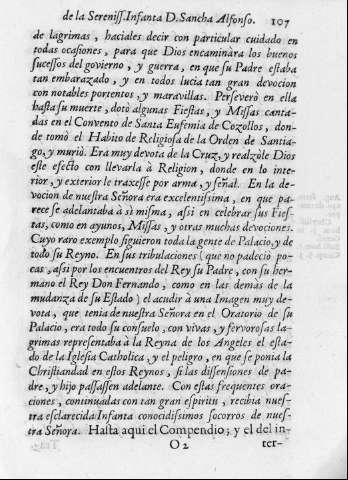 de la Sereniss. Infanta D. Sancha Alfonso. 107
de lagrimas, haciales decir con particular cuidado en
todas ocasiones, para que Dios encaminàra los buenos
sucessos del govierno, y guerra, en que su Padre estaba
tan embarazado, y en todos lucia tan gran devocion
con notables portentos, y maravillas. Perseverò en ella
hasta su muerte, dotò algunas Fiestas, y Missas canta-
das en el Convento de Santa Eufemia de Cozollos, don-
de tomò el Habito de Religiosa de la Orden de Santia-
go, y muriò. Era muy devota de la Cruz, y realzòle Dios
este efecto con llevarla à Religion, donde en lo inte-
rior, y exterior le traxesse por arma, y señal. En la de-
vocion de nuestra Señora era excelentissima, en que pa-
rece se adelantaba à si misma, assi en celebrar sus Fies-
tas, como en ayunos, Missas, y otras muchas devociones.
Cuyo raro exemplo siguieron toda la gente de Palacio, y de
todo su Reyno. En sus tribulaciones (que no padeciò po-
cas, assi por los encuentros del Rey su Padre, con su her-
mano el Rey Don Fernando, como en las demàs de la
mudanza de su Estado) el acudir à una Imagen muy de-
vota, que tenia de nuestra Señora en el Oratorio de su
Palacio, era todo su consuelo, con vivas, y fervorosas la-
grimas representaba à la Reyna de los Angeles el esta-
do de la Iglesia Catholica, y el peligro, en que se ponia la
Christiandad en estos Reynos, si las dissensiones de pa-
dre, y hijo passassen adelante. Con estas frequentes ora-
ciones, continuadas con tan gran espiritu, recibia nues-
tra esclarecida Infanta conocidissimos socorros de nues-
tra Señora. Hasta aqui el Compendio; y el del in-
O 2 ter-